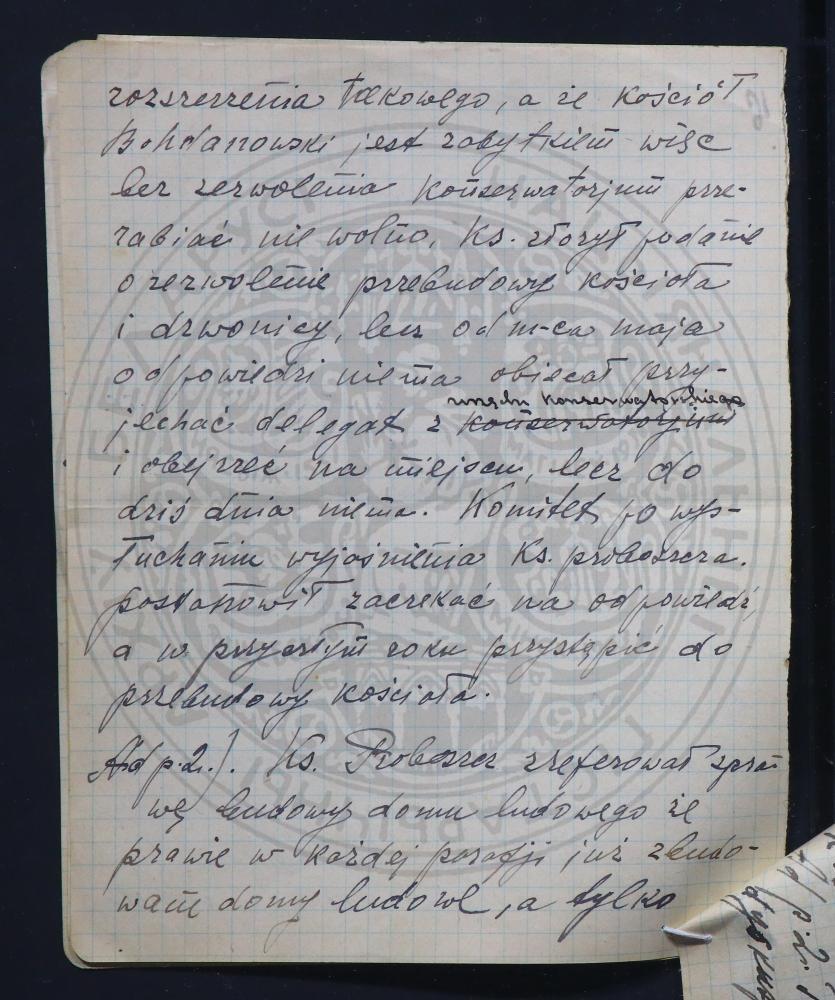 rozszerzenia takowego, a że kościół
Bohdanowski jest zabytkiem więc
bez zezwolenia konserwatorjum prze-
rabiać nie wolno, Ks. złożył podanie
o zezwolenie przebudowy kościoła
i dzwonicy, lecz od m-ca maja
odpowiedzi niema obiecał przy-
urzędu konserwatorskiego
jechać delegat z konserwatorjum
i obejrzeć na miejscu, lecz do
dziś dnia niema. Komitet po wys-
łuchaniu wyjaśnienia Ks. proboszcza.
postanowił zaczekać na odpowiedź,
a w przyszłym roku przystąpić do
przebudowy kościoła.
Ad p. 2.). Ks. Proboszcz zreferował spra-
wę budowy domu ludowego że
prawie w każdej parafji już zbudo-
wane domy ludowe, a tylko